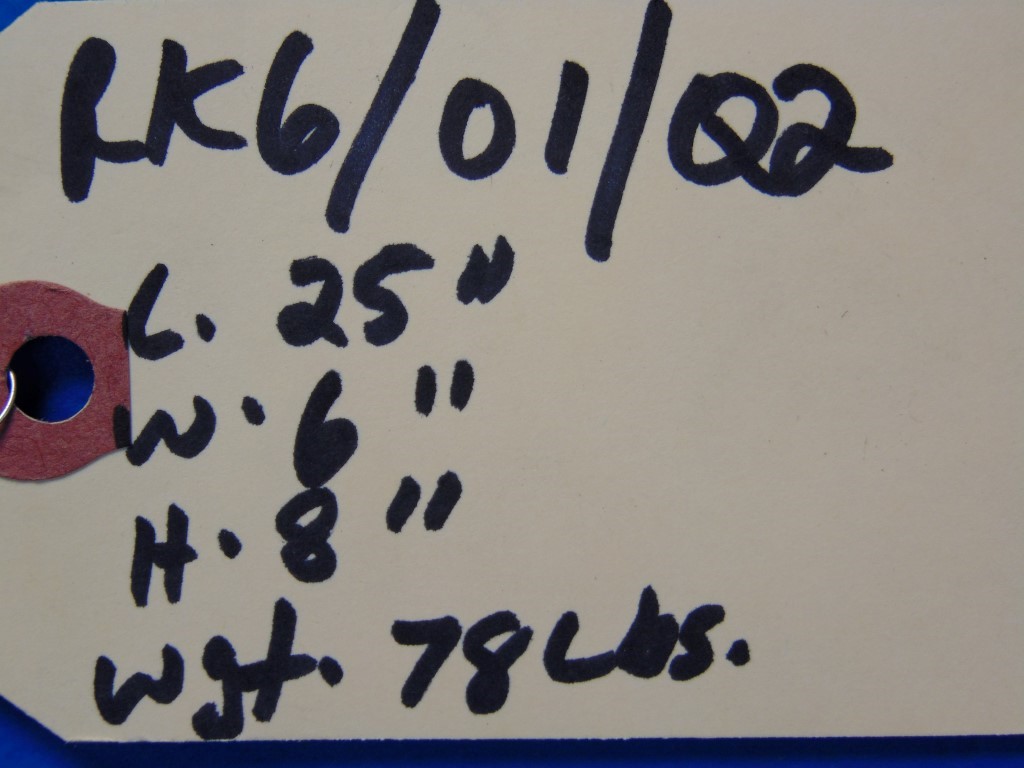 RK6/01/Q2
L. 25"
W. 6"
H. 8"
Wgt. 78 Lbs.